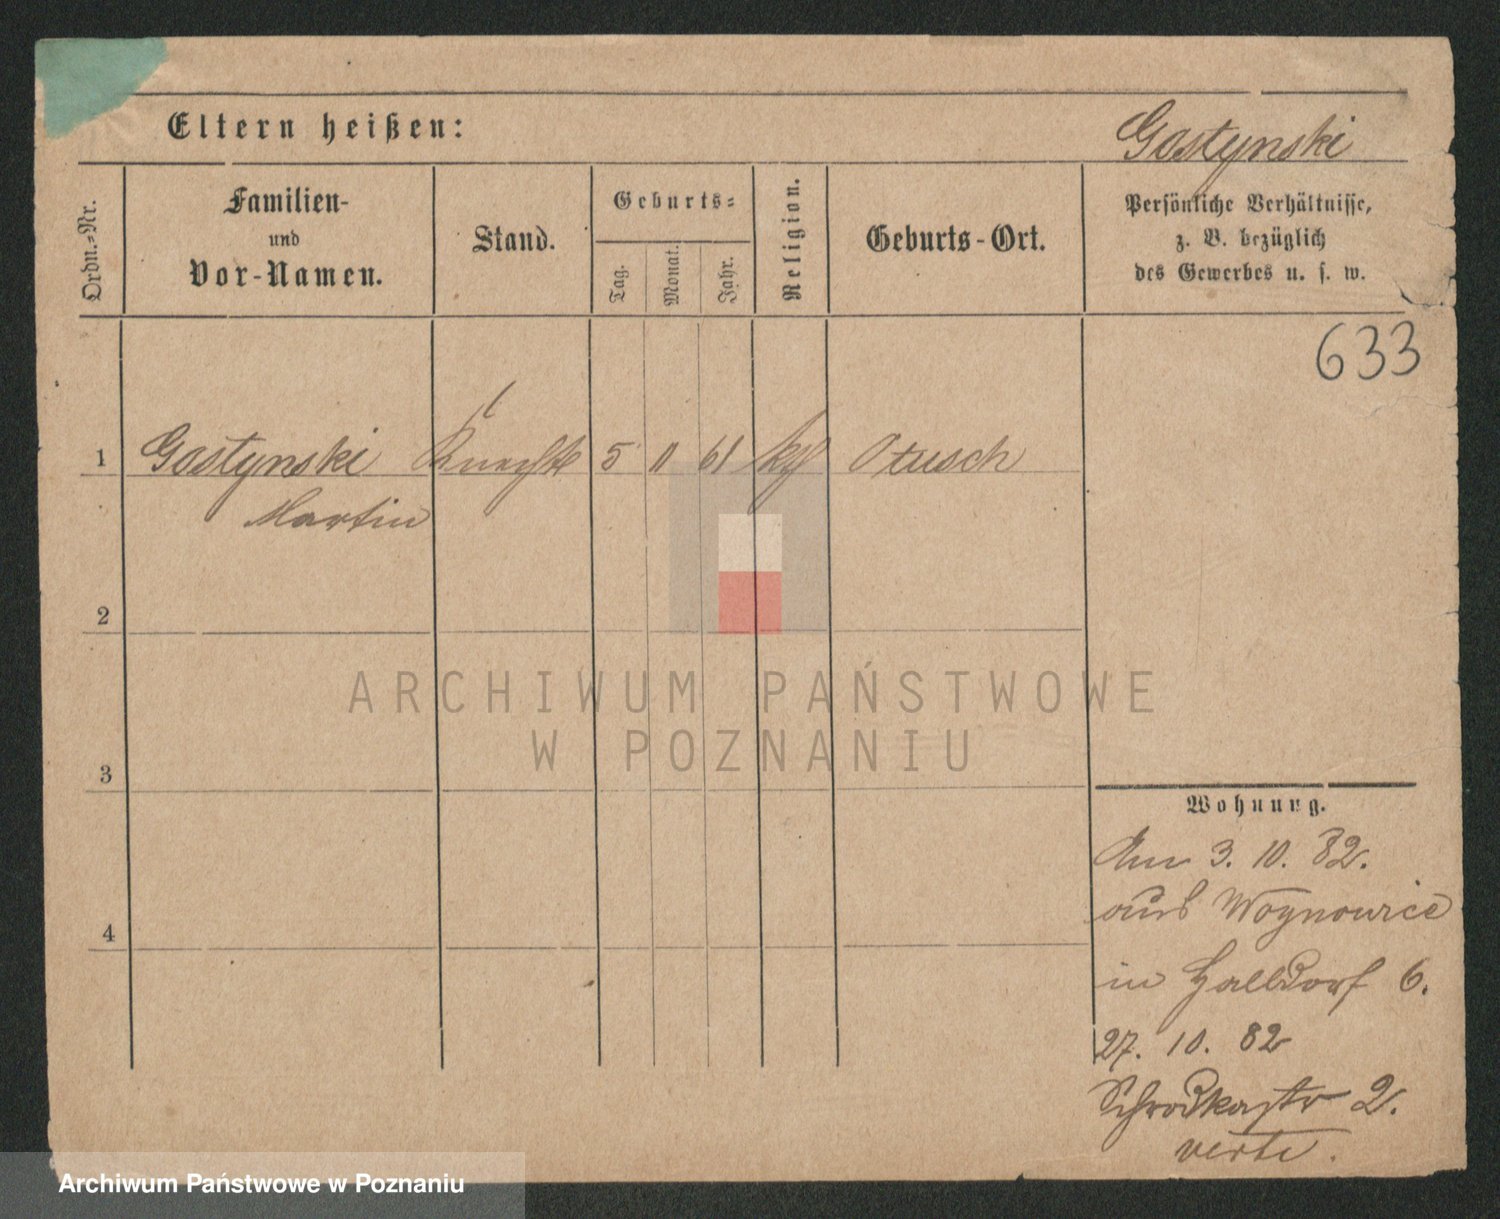 Eltern heißen:
Gostynski
Ordn.-Nr.
Familien-
und
Vor-Namen.
Stand.
Geburts-
Tag.
Monat.
Jahr.
Religion.
Geburts-Ort.
Persönliche Verhältnisse,
z. B. bezüglich
des Gewerbes u. s. w.
633
1 Gostynski Knecht 5 11 61 kth Otusch
Martin
2
3
4
ARCHIWUM PAŃSTWOWE
W POZNANIU
Wohnung.
Am 3. 10. 82.
aus Woynowice
in Halbdorf 6.
27. 10. 82
Schrodkastr 2.
verte.
Archiwum Państwowe w Poznaniu